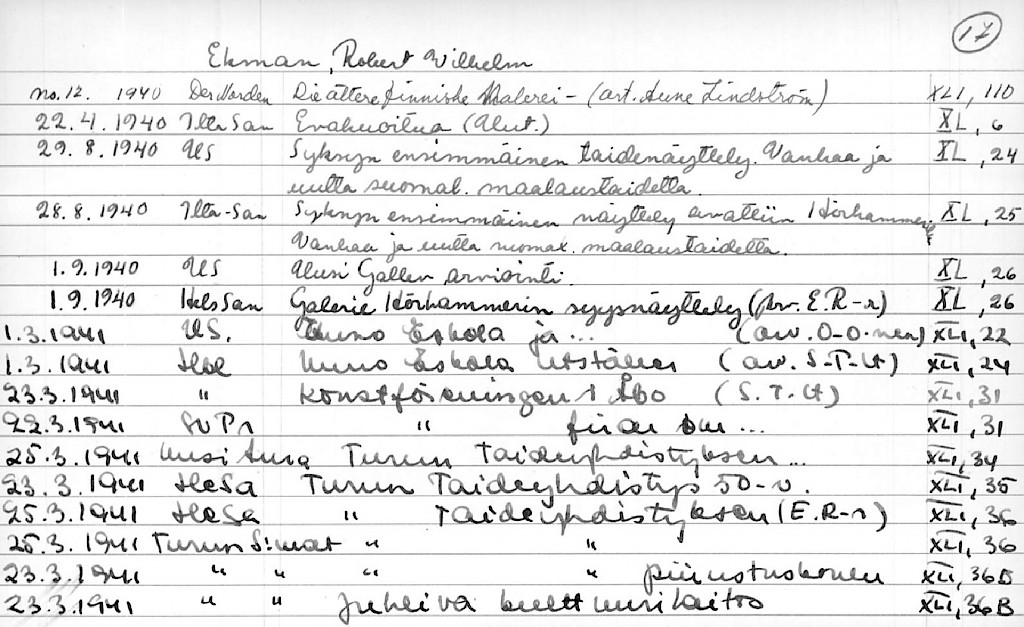 17
Ekman, Robert Wilhelm
no. 12. 1940 Der Norden Die ältere finnische Malerei - (art. Aune Lindström) XLI, 110
22.4.1940 Ilta San Evakuoitua (Alut.) XL, 6
29.8.1940 US Syksyn ensimmäinen taidenäyttely. Vanhaa ja XL, 24
uutta suomal. maalaustaidetta.
28.8.1940 Ilta-San Syksyn ensimmäinen näyttely avattiin Hörhammer XL, 25
Vanhaa ja uutta suomal. maalaustaidetta.
1.9.1940 US Uusi Gallen arviointi. XL, 26
1.9.1940 HelsSan Galerie Hörhammerin syysnäyttely (arv. E.R-r) XL, 26
1.3.1941 US. Uuno Eskola ja ... (arv. O-O-nen) XLI, 22
1.3.1941 Hbl Uuno Eskola utställer (arv. S-T-lt) XLI, 24
23.3.1941 " Konstföreningen i Åbo (S.T.lt) XLI, 31
22.3.1941 SvPr " firar sin ... XLI, 31
25.3.1941 Uusi Aura Turun Taideyhdistyksen ... XLI, 34
23.3.1941 HeSa Turun Taideyhdistys 50-v. XLI, 35
25.3.1941 HeSa " Taideyhdistyksen (E.R-r) XLI, 36
25.3.1941 Turun S:mat " " XLI, 36
23.3.1941 " " " " piirustuskoulu XLI, 36B
23.3.1941 " " Juhliva kulttuurilaitos XLI, 36B